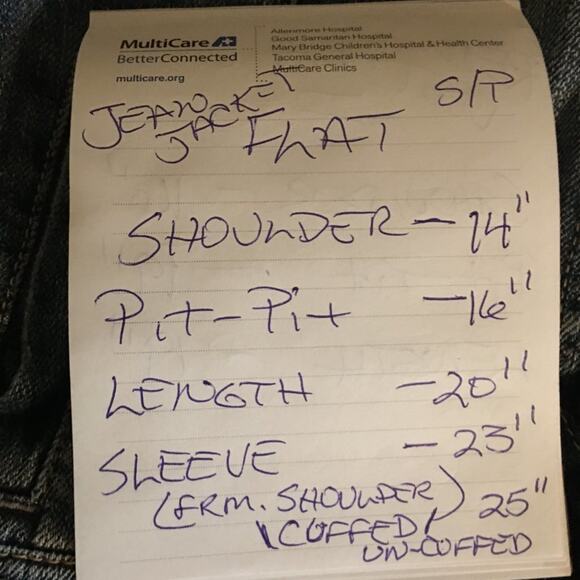 MultiCare
BetterConnected
multicare.org
Allenmore Hospital
Good Samaritan Hospital
Mary Bridge Children's Hospital & Health Center
Tacoma General Hospital
MultiCare Clinics
JEAN JACKET FLAT SR
SHOULDER - 14"
Pit-Pit - 16"
LENGTH - 20"
SLEEVE - 23"
(FRM. SHOULDER) 25"
(CUFFED / UN-CUFFED